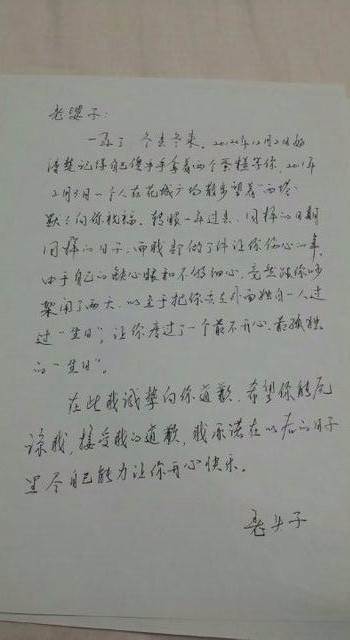 老婆子：
一年了，冬去冬来，2010年12月2日我
清楚记得自己傻乎乎拿着两个蛋糕等你，2011年
2月3日一个人在花城广场散步望着"西塔"
默默向你祝福。转眼一年过去，同样的日期
同样的日子，而我却做了件让你伤心的事。
由于自己的缺心眼和不够细心，竟然跟你吵
架闹了两天，以至于把你丢在外面独自一人过
过"生日"，让你度过了一个最不开心、最孤独
的"生日"。
在此我诚挚向你道歉，希望你能原
谅我，接受我的道歉，我承诺在以后的日子
里尽自己能力让你开心快乐。
老头子